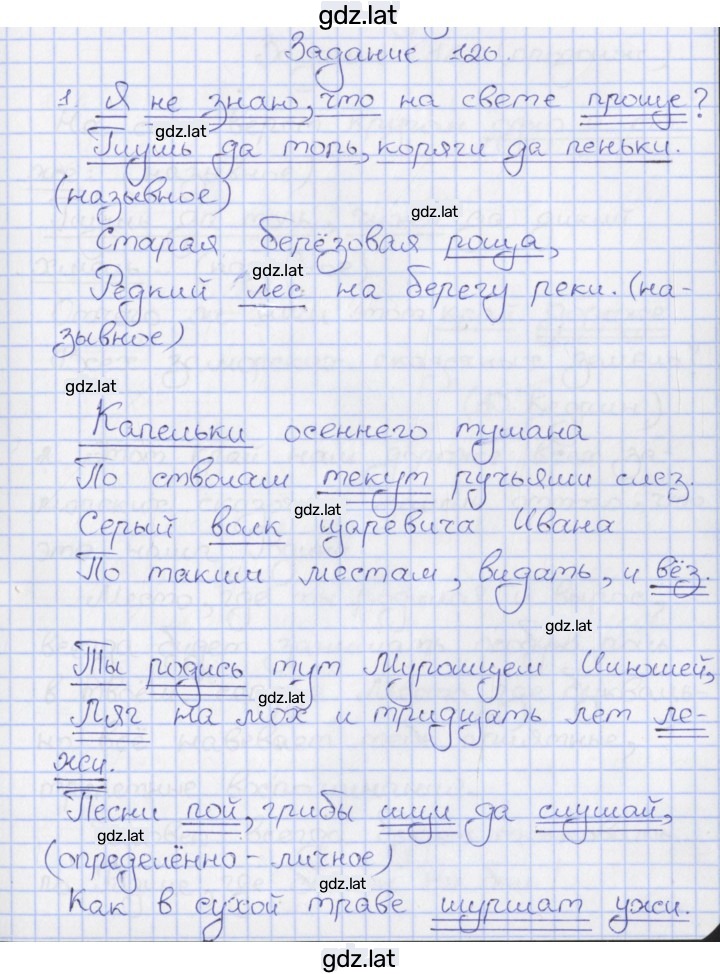 gdz.lat
Задание 120.
1. Я не знаю, что на свете проще?
gdz.lat
Глушь да топь, коряги да пеньки.
(назывное)
gdz.lat
Старая берёзовая роща,
gdz.lat
Редкий лес на берегу реки. (на-
зывное)
gdz.lat
Капельки осеннего тумана
По стволам текут ручьями слез.
gdz.lat
Серый волк царевича Ивана
По таким местам, видать, и вёз.
gdz.lat
Ты родись тут Муромцем Илюшей,
gdz.lat
Ляг на мох и тридцать лет ле-
жи.
Песни пой, грибы ищи да слушай,
gdz.lat
(определённо-личное)
gdz.lat
Как в сухой траве шуршат ужи.
gdz.lat